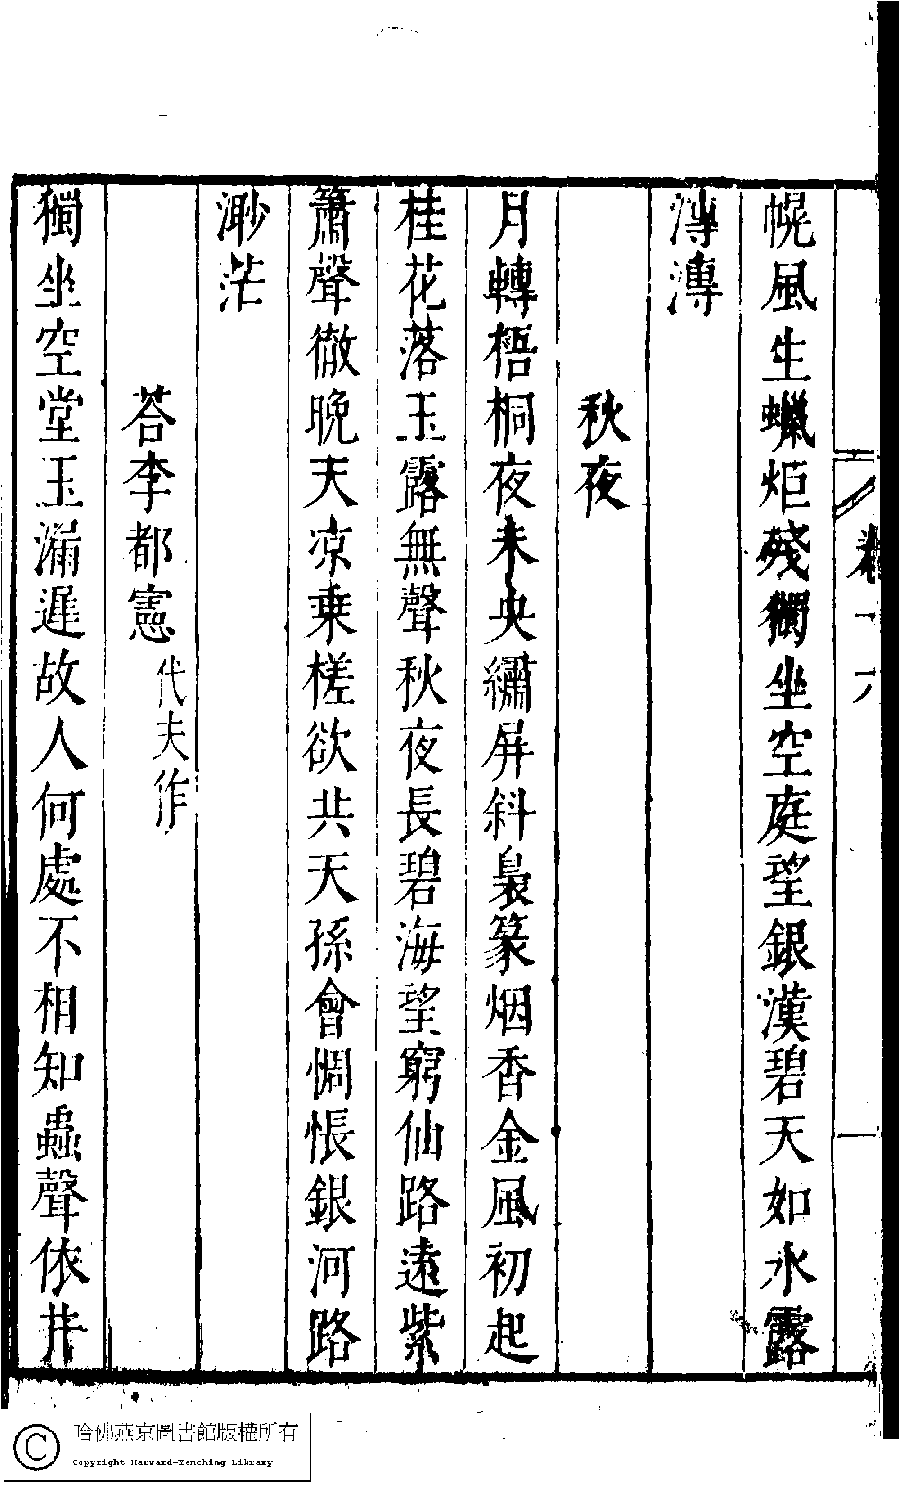 幌風生蠟炬殘獨坐空庭望銀漢碧天如水露
漙漙
秋夜
月轉梧桐夜未央繡屏斜裊篆烟香金風初起
桂花落玉露無聲秋夜長碧海望窮仙路遠紫
簫聲徹晚天凉乗槎欲共天孫會惆悵銀河路
渺茫
荅李都憲代夫作
獨坐空堂玉漏遲故人何處不相知蟲聲依井
哈佛燕京圖書館版權所有
Copyright Harvard-Yenching Library